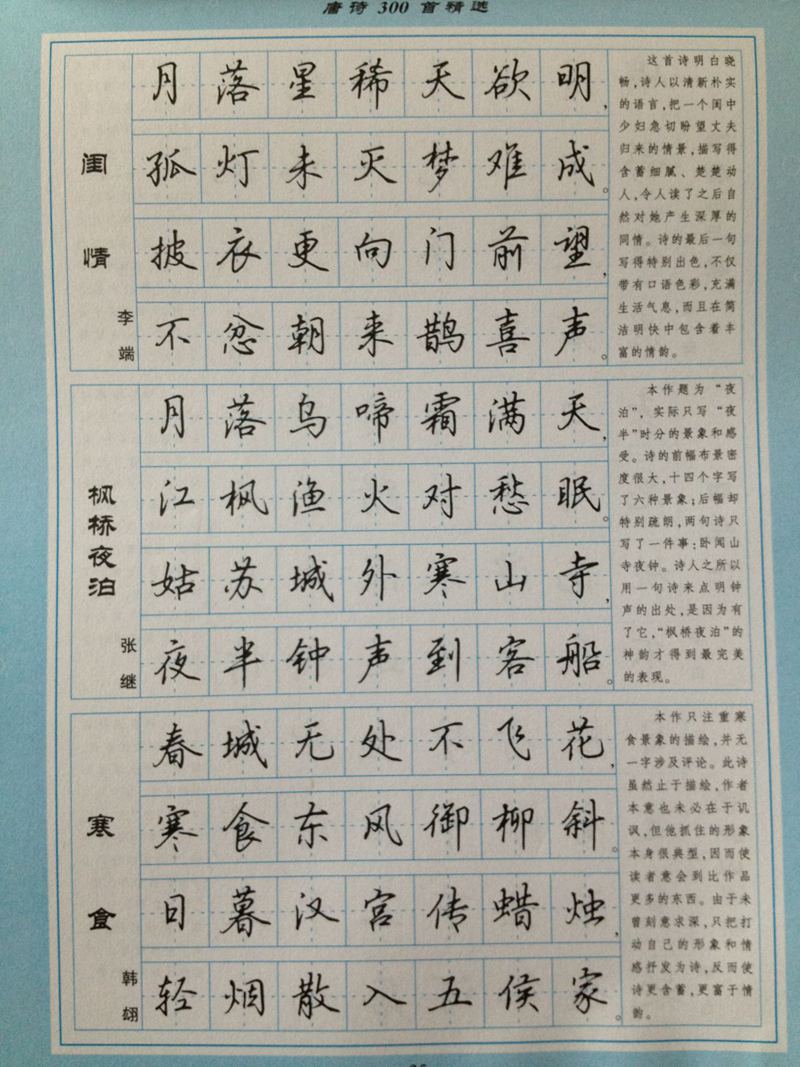 唐诗 300 首精选
闺情
李端
月落星稀天欲明，
孤灯未灭梦难成。
披衣更向门前望，
不忿朝来鹊喜声。
这首诗明白晓
畅，诗人以清新朴实
的语言，把一个闺中
少妇急切盼望丈夫
归来的情景，描写得
含蓄细腻、楚楚动
人，令人读了之后自
然对她产生深厚的
同情。诗的最后一句
写得特别出色，不仅
带有口语色彩，充满
生活气息，而且在简
洁明快中包含着丰
富的情韵。
枫桥夜泊
张继
月落乌啼霜满天，
江枫渔火对愁眠。
姑苏城外寒山寺，
夜半钟声到客船。
本作题为“夜
泊”，实际只写“夜
半”时分的景象和感
受。诗的前幅布景密
度很大，十四个字写
了六种景象；后幅却
特别疏朗，两句诗只
写了一件事：卧闻山
寺夜钟。诗人之所以
用一句诗来点明钟
声的出处，是因为有
了它，“枫桥夜泊”的
神韵才得到最完美
的表现。
寒食
韩翃
春城无处不飞花，
寒食东风御柳斜。
日暮汉宫传蜡烛，
轻烟散入五侯家。
本作只注重寒
食景象的描绘，并无
一字涉及评论。此诗
虽然止于描绘，作者
本意也未必在于讥
讽，但他抓住的形象
本身很典型，因而使
读者意会到比作品
更多的东西。由于未
曾刻意求深，只把打
动自己的形象和情
感抒发为诗，反而使
诗更含蓄，更富于情
韵。